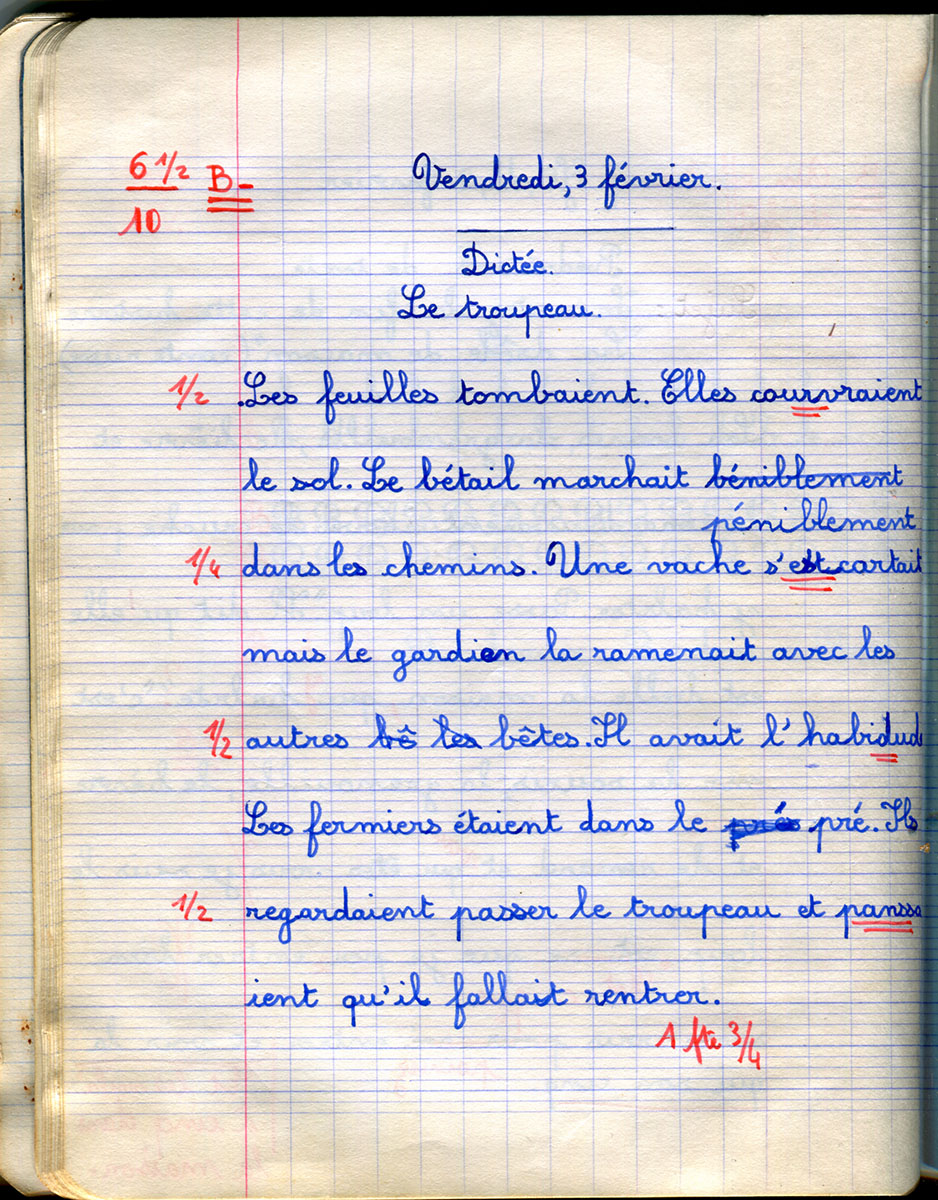 6 1/2 B-
10
Vendredi, 3 février.
Dictée.
Le troupeau.
1/2 Les feuilles tombaient. Elles courvraient
le sol. Le bétail marchait béniblement
péniblement
1/4 dans les chemins. Une vache s'est cartait
mais le gardien la ramenait avec les
1/2 autres bê les bêtes. Il avait l'habidud
Les fermiers étaient dans le prés pré. Ils
1/2 regardaient passer le troupeau et panssa
ient qu'il fallait rentrer.
1 fte 3/4